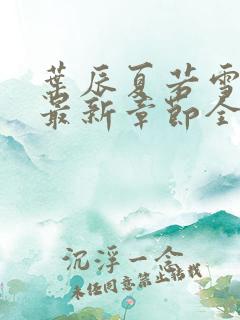 葉辰夏若雪
最新章節全
沉浮一念
未经同意禁止转载